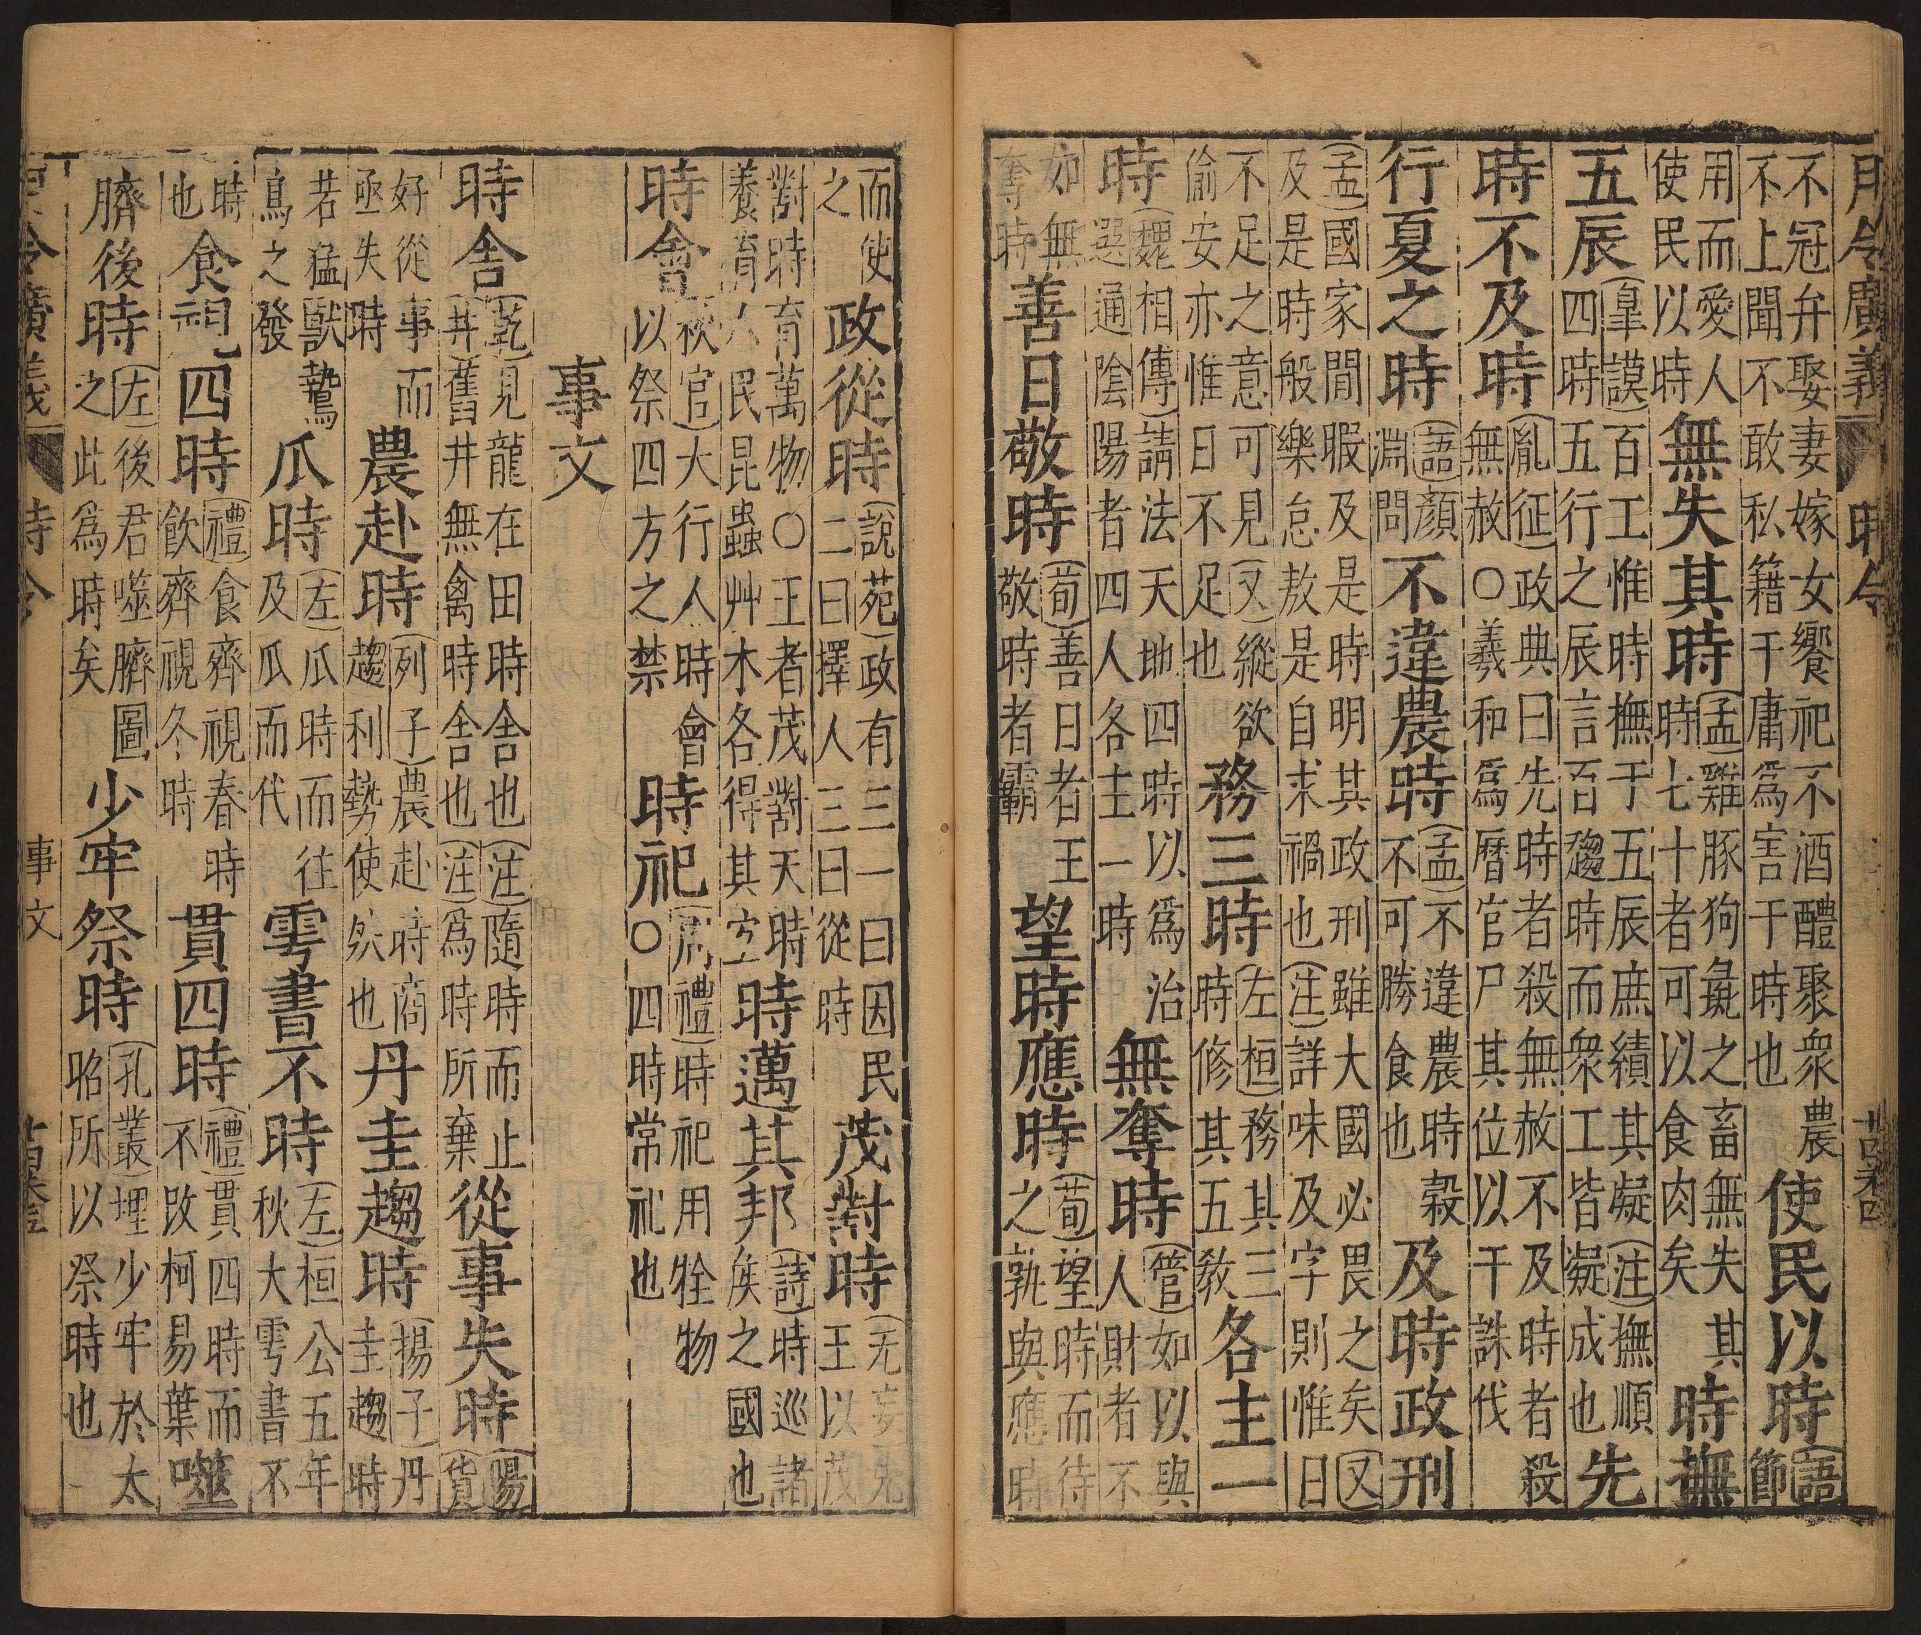 月令廣義 時令
不冠弁娶妻嫁女饗祀不酒醴聚衆農
不上聞不敢私籍于庸爲害于時也
使民以時
(語)
節
用而愛人
使民以時
無失其時
(孟)雞豚狗彘之畜無失其
時七十者可以食肉矣
時撫
五辰
(皐謨)百工惟時撫于五辰庶績其凝(注)撫順
四時五行之辰言百趨時而衆工皆凝成也
先
時不及時
(胤征)政典曰先時者殺無赦不及時者殺
無赦○羲和爲曆官尸其位以干誅伐
行夏之時
(語)顏
淵問
不違農時
(孟)不違農時穀
不可勝食也
及時政刑
(孟)國家閒暇及是時明其政刑雖大國必畏之矣(又)
及是時般樂怠敖是自求禍也(注)詳味及字則惟日
不足之意可見(又)縱欲
偷安亦惟日不足也
務三時
(左桓)務其三
時修其五敎
各主一
時
(魏相傳)請法天地四時以爲治
選通陰陽者四人各主一時
無奪時
(管)如以與
人財者不
如無
奪時
善日敬時
(荀)善日者王
敬時者霸
望時應時
(荀)望時而待
之孰與應時
而使
之
政從時
(說苑)政有三一曰因民
二曰擇人三曰從時
茂對時
(无妄)先
王以茂
對時育萬物○王者茂對天時
養育人民昆蟲艸木各得其宜
時邁其邦
(詩)時巡諸
侯之國也
時會
(秋官)大行人時會
以祭四方之禁
時祀
(周禮)時祀用牷物
○四時常祀也
事文
時舍
(乾)見龍在田時舍也(注)隨時而止
(井)舊井無禽時舍也(注)爲時所棄
從事失時
(陽
貨)
好從事而
亟失時
農赴時
(列子)農赴時商
趨利勢使然也
丹圭趨時
(揚子)丹
圭趨時
若猛獸鷙
鳥之發
瓜時
(左)瓜時而往
及瓜而代
雩書不時
(左)桓公五年
秋大雩書不
時
也
食視四時
(禮)食齊視春時
飲齊視冬時
貫四時
(禮)貫四時而
不改柯易葉
噬
臍後時
(左)後君噬臍圖
之此爲時矣
少牢祭時
(孔叢)埋少牢於太
昭所以祭時也
時令 事文